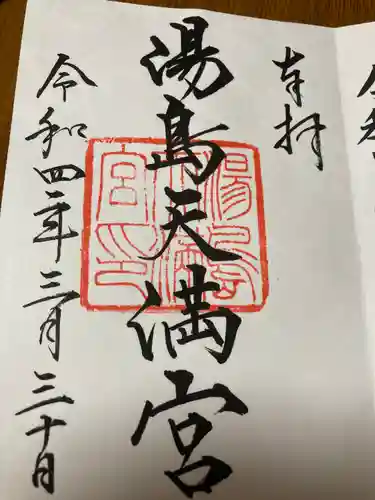 奉拝
湯島天満宮
湯島天満宮之印
令和四年三月三十日